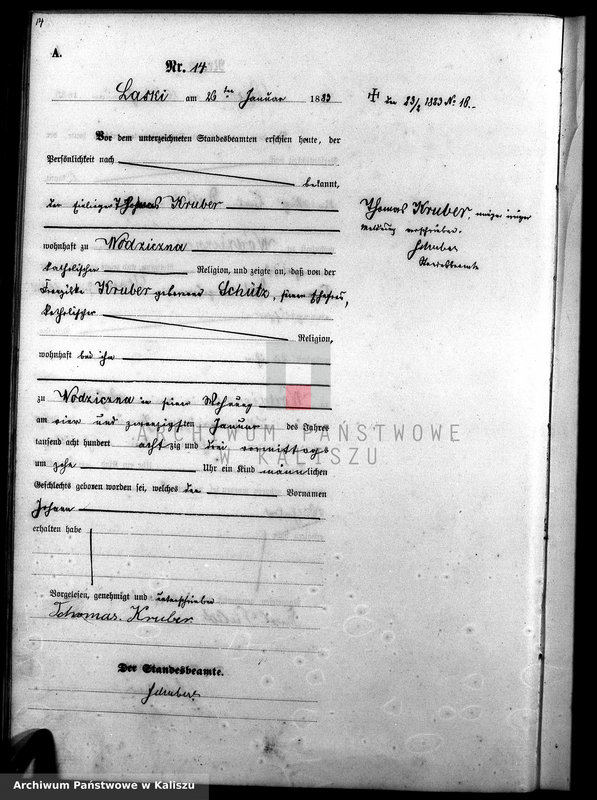 14
A.
Nr. 14
Laski am 26ten Januar 1883
Vor dem unterzeichneten Standesbeamten erschien heute, der
Persönlichkeit nach
bekannt,
der Einlieger Thomas Kruber
wohnhaft zu Wodziczna
katholischer Religion, und zeigte an, daß von der
Franziska Kruber geborenen Schütz, seiner Ehefrau,
katholischer
Religion,
wohnhaft bei ihm
zu Wodziczna in seiner Wohnung
am vier und zwanzigsten Januar des Jahres
tausend acht hundert achtzig und drei vormittags
um zehn Uhr ein Kind männlichen
Geschlechts geboren worden sei, welches den Vornamen
Johann
erhalten habe
Vorgelesen, genehmigt und unterschrieben
Thomas Kruber
Der Standesbeamte.
Schubert
✝ den 23/2 1883 No 18.
Thomas Kruber,
Meldung erschienen.
Schubert
Standesbeamte
ARCHIWUM PAŃSTWOWE
W KALISZU
Archiwum Państwowe w Kaliszu